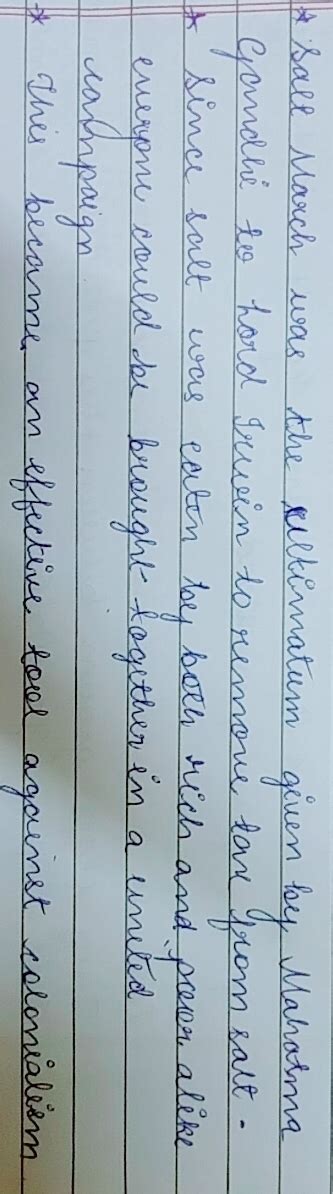 * Salt March was the ultimatum given by Mahatma
Gandhi to Lord Irwin to remove tax from salt.
* Since salt was eaten by both rich and poor alike
everyone could be brought together in a united
campaign
* This became an effective tool against colonialism